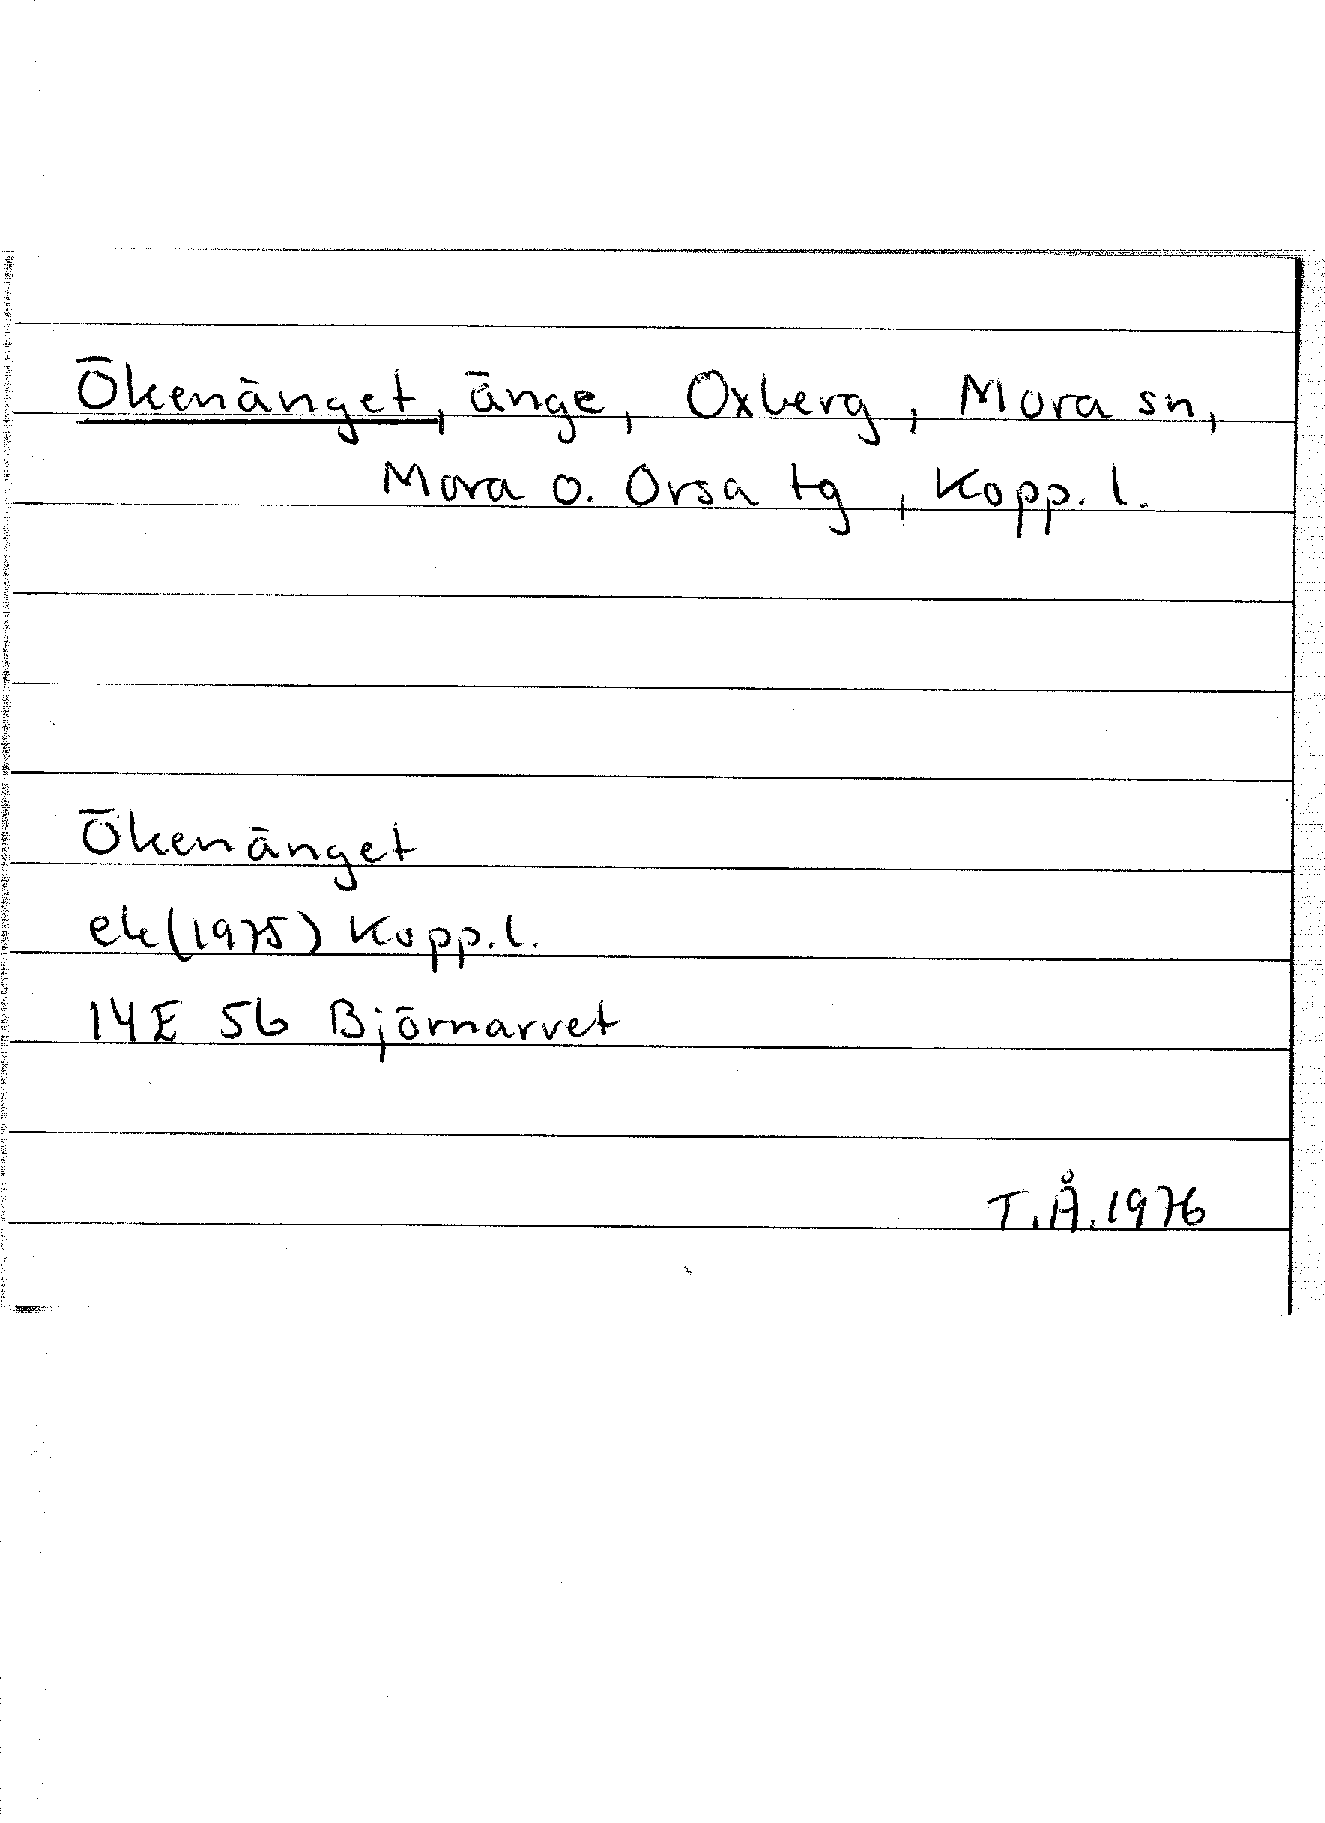 Ökenänget, änge, Oxberg, Mora sn,
Mora o. Orsa tg, Kopp. l.
Ökenänget
ek (1975) Kopp. l.
14E 5b Björnarvet
T.Å. 1976